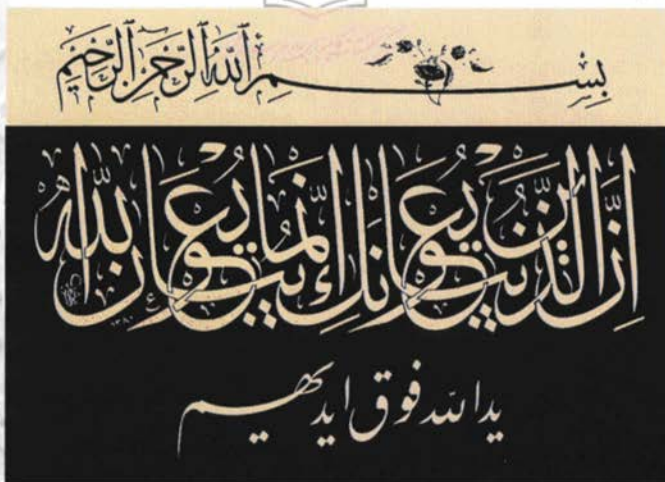 بِسْمِ ٱللَّهِ ٱلرَّحْمَٰنِ ٱلرَّحِيمِ
اِنَّ الَّذينَ يُبايِعُونَكَ اِنَّما يُبايِعُونَ اللهَ
يدالله فوق ايديهم